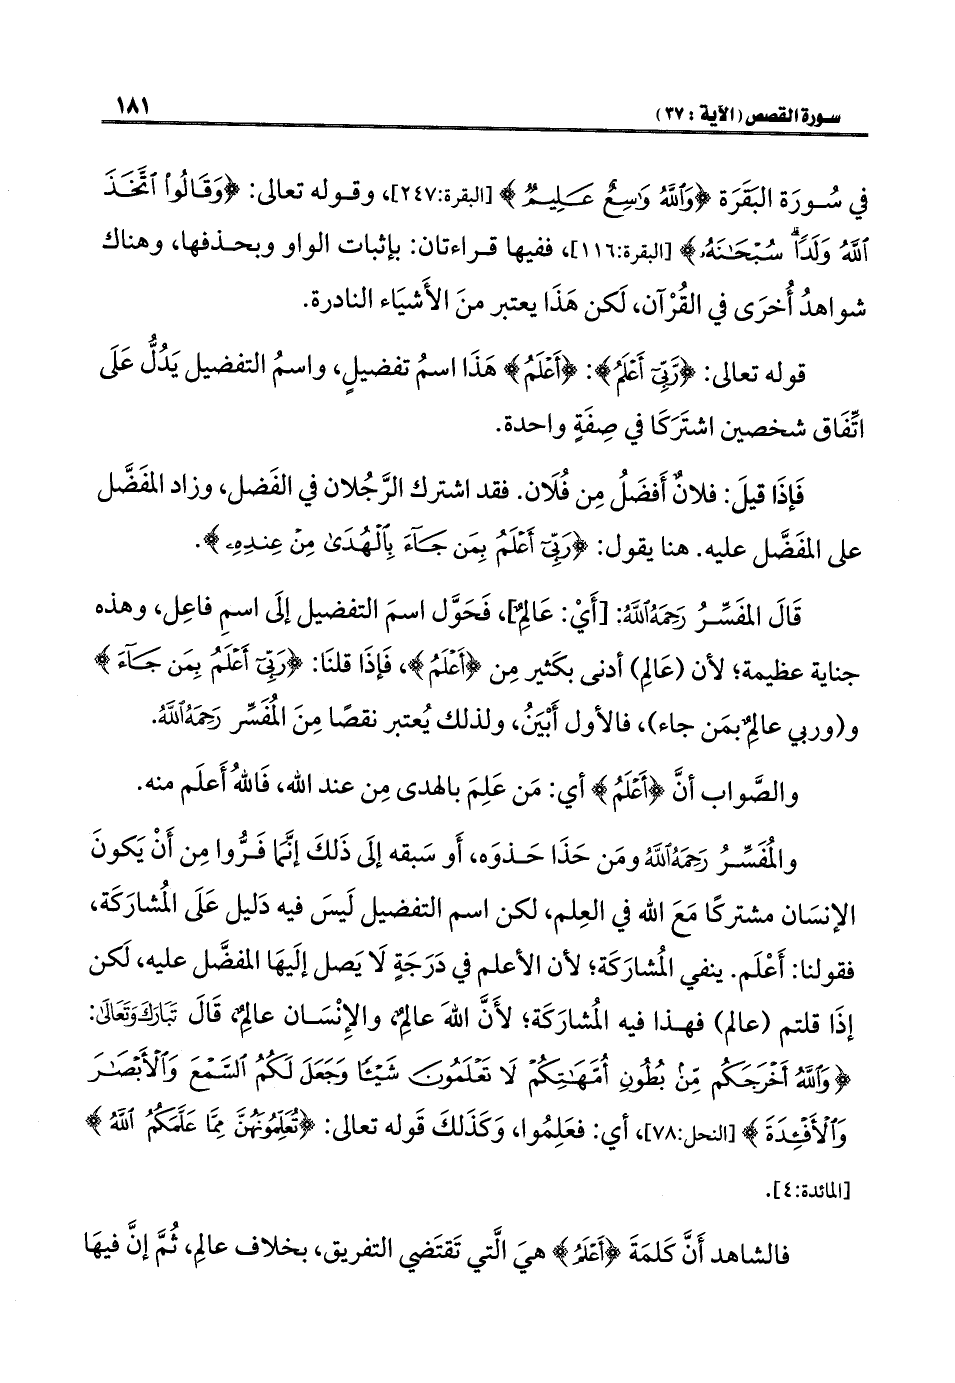 سورة القصص (الآية : ٣٧)
١٨١
في سُورَة البَقَرَة ﴿وَٱللَّهُ وَٰسِعٌ عَلِيمٌ﴾ [البقرة:٢٤٧]، وقوله تعالى: ﴿وَقَالُوا۟ ٱتَّخَذَ
ٱللَّهُ وَلَدًاۗ سُبْحَـٰنَهُۥ﴾ [البقرة:١١٦]، ففيها قراءتان: بإثبات الواو وبحذفها، وهناك
شواهدُ أُخرَى في القُرْآن، لَكن هَذَا يعتبر منَ الأَشيَاء النادرة.
قوله تعالى: ﴿رَبِّىٓ أَعْلَمُ﴾: ﴿أَعْلَمُ﴾ هَذَا اسمُ تفضيلٍ، واسمُ التفضيل يَدُلُّ عَلَى
اتِّفَاق شخصين اشتَرَكَا في صِفَةٍ واحدة.
فَإذَا قيلَ: فلانٌ أَفضَلُ مِن فُلَان. فقد اشترك الرَّجُلان في الفَضل، وزاد المفَضَّل
على المفَضَّل عليه. هنا يقول: ﴿رَبِّىٓ أَعْلَمُ بِمَن جَآءَ بِٱلْهُدَىٰ مِنْ عِندِهِۦ﴾.
قَالَ المفَسِّرُ رَحِمَهُ ٱللَّهُ: [أَيْ: عَالِمٌ]، فَحَوَّل اسمَ التفضيل إلَى اسمِ فاعِل، وهذه
جناية عظيمة؛ لأن (عَالِم) أدنى بكَثير مِن ﴿أَعْلَمُ﴾، فَإذَا قلنَا: ﴿رَبِّىٓ أَعْلَمُ بِمَن جَآءَ﴾
و(وربي عالمٌ بمَن جاء)، فالأول أبْيَنُ، ولذلك يُعتبر نقصًا مِنَ المُفَسِّر رَحِمَهُ ٱللَّهُ.
والصَّواب أنَّ ﴿أَعْلَمُ﴾ أي: مَن عَلِمَ بالهدى مِن عند الله، فَاللهُ أعلَم منه.
والمُفَسِّرُ رَحِمَهُ ٱللَّهُ ومَن حَذَا حَذوَه، أو سَبقه إلَى ذَلكَ إنَّمَا فَرُّوا مِن أَنْ يَكونَ
الإنسَان مشتركًا مَعَ الله في العِلم، لكن اسم التفضيل لَيسَ فيه دَليل عَلَى المُشارَكَة،
فقولنا: أَعْلَم. ينفي المُشارَكَة؛ لأن الأعلم في دَرَجَةٍ لَا يَصل إلَيهَا المفضَّل عليه، لَكن
إذَا قلتم (عالم) فهذا فيه المُشارَكَة؛ لأنَّ اللهَ عالمٌ، والإنْسَان عالمٌ، قَالَ تَبَارَكَ وَتَعَالَى:
﴿وَٱللَّهُ أَخْرَجَكُم مِّنۢ بُطُونِ أُمَّهَـٰتِكُمْ لَا تَعْلَمُونَ شَيْـًٔا وَجَعَلَ لَكُمُ ٱلسَّمْعَ وَٱلْأَبْصَـٰرَ
وَٱلْأَفْـِٔدَةَ﴾ [النحل:٧٨]، أي: فعَلِموا، وَكَذَلكَ قَوله تعالى: ﴿تُعَلِّمُونَهُنَّ مِمَّا عَلَّمَكُمُ ٱللَّهُ﴾
[المائدة:٤].
فالشاهد أنَّ كَلمَةَ ﴿أَعْلَمُ﴾ هيَ الَّتي تَقتَضي التفريق، بخلاف عالِم، ثُمَّ إنَّ فيهَا